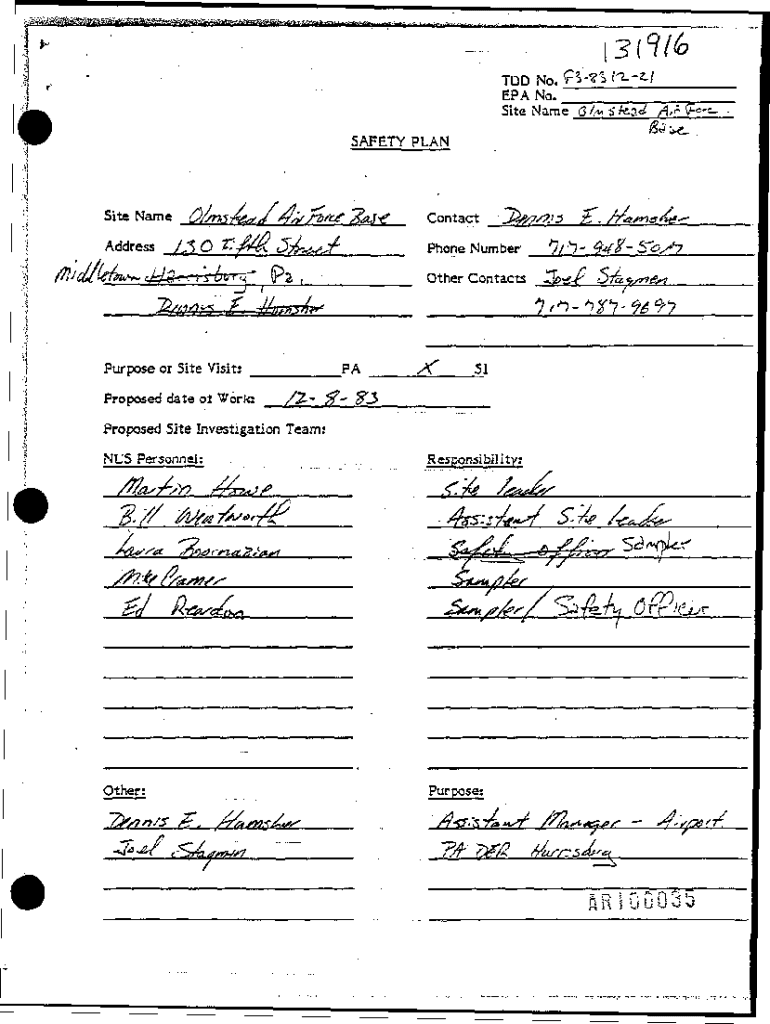 131916
TDD No. F3-8312-21
EPA No.
Site Name Olmstead Air Force
Base
SAFETY PLAN
Site Name Olmstead Air Force Base Contact Dennis E. Hamsher
Address 130 Fifth Street Phone Number 717-948-5017
Middletown Harrisburg, Pa. Other Contacts Joel Stagmen
Dennis E Hamsher 717-787-9697
Purpose or Site Visit: PA X SI
Proposed date of Work: 12-8-83
Proposed Site Investigation Team:
NUS Personnel: Responsibility:
Martin Howe Site leader
Bill Wentworth Assistant Site leader
Laura Boornazian Safety Officer Sampler
Mike Cramer Sampler
Ed Reardon Sampler/ Safety Officer
Other: Purpose:
Dennis E. Hamsher Assistant Manager - Airport
Joel Stagmin PA DER Harrisburg
AR100035